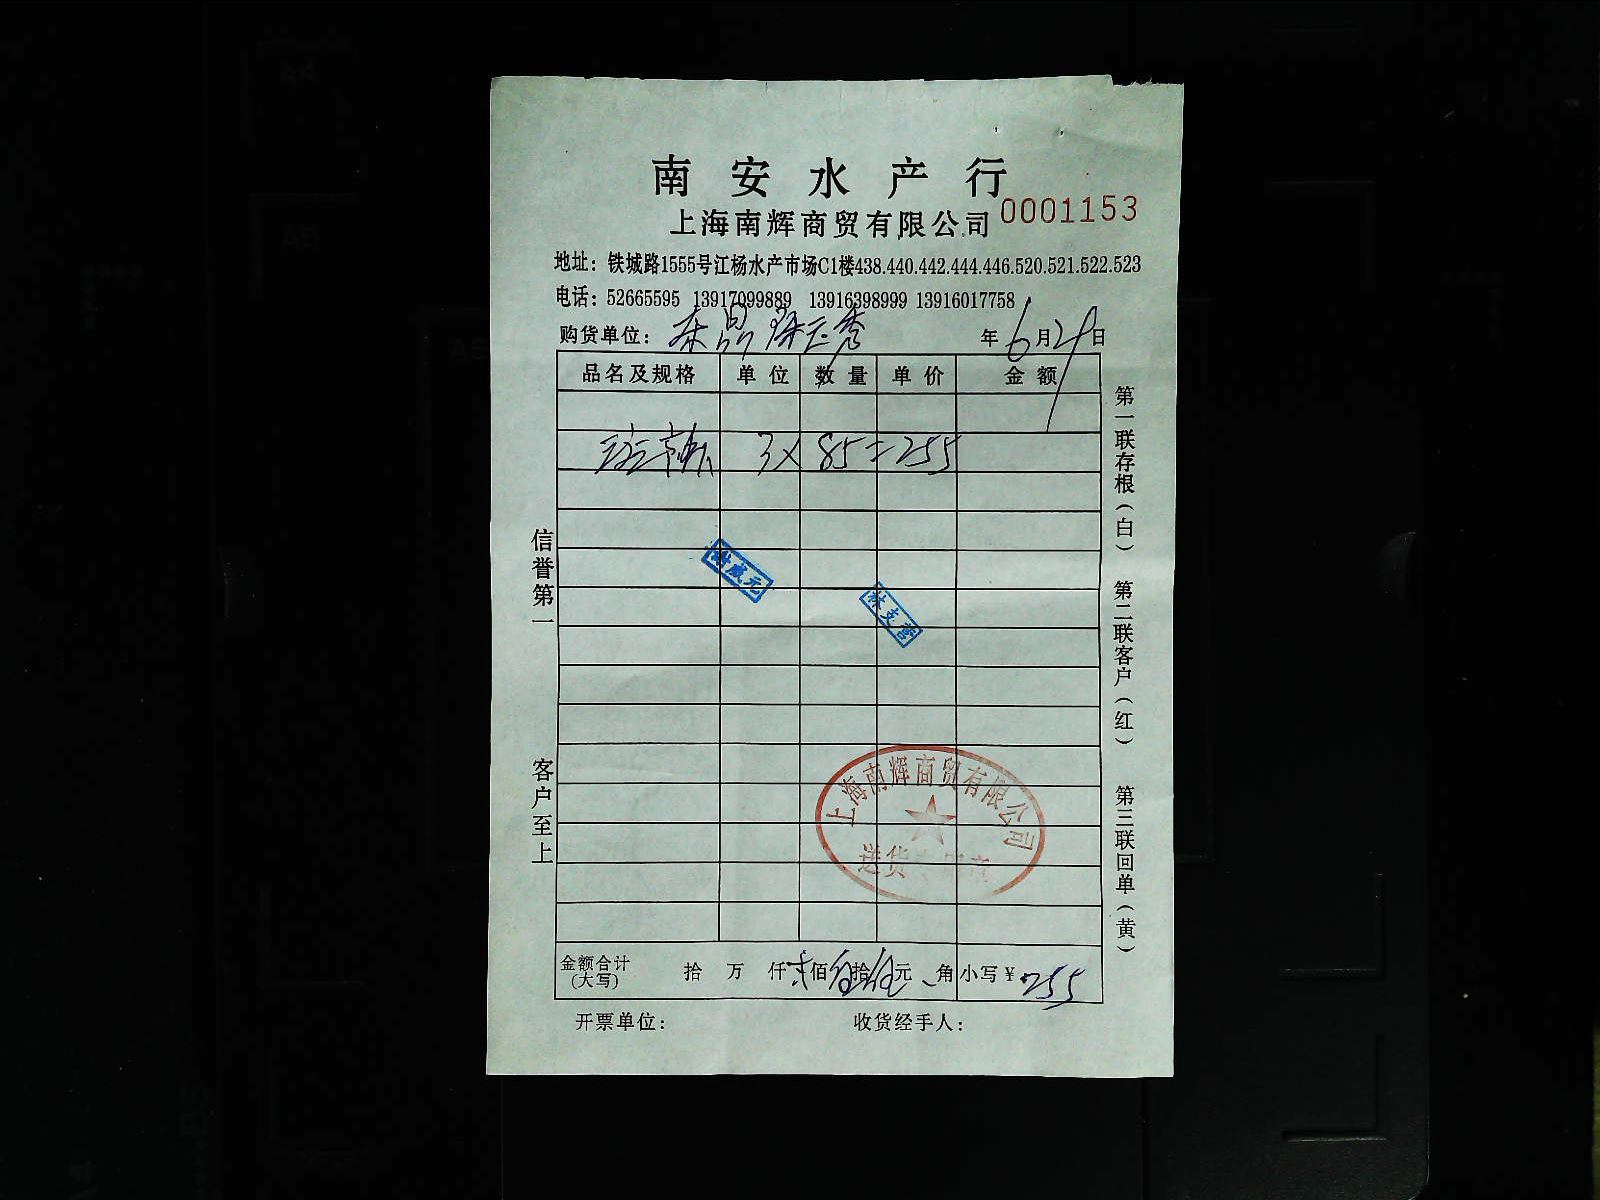 南安水产行
上海南辉商贸有限公司 0001153
地址：铁城路1555号江杨水产市场C1楼438.440.442.444.446.520.521.522.523
电话：52665595 13917099889 13916398999 13916017758
购货单位： 年 6 月 29 日
品名及规格 单位 数量 单价 金额
斑节虾 3 × 85 = 255
信誉第一
客户至上
第一联存根（白）
第二联客户（红）
第三联回单（黄）
林支营
上海南辉商贸有限公司
送货
金额合计(大写) 拾 万 仟 佰 伍 拾 伍 元 角 小写￥255
开票单位： 收货经手人：